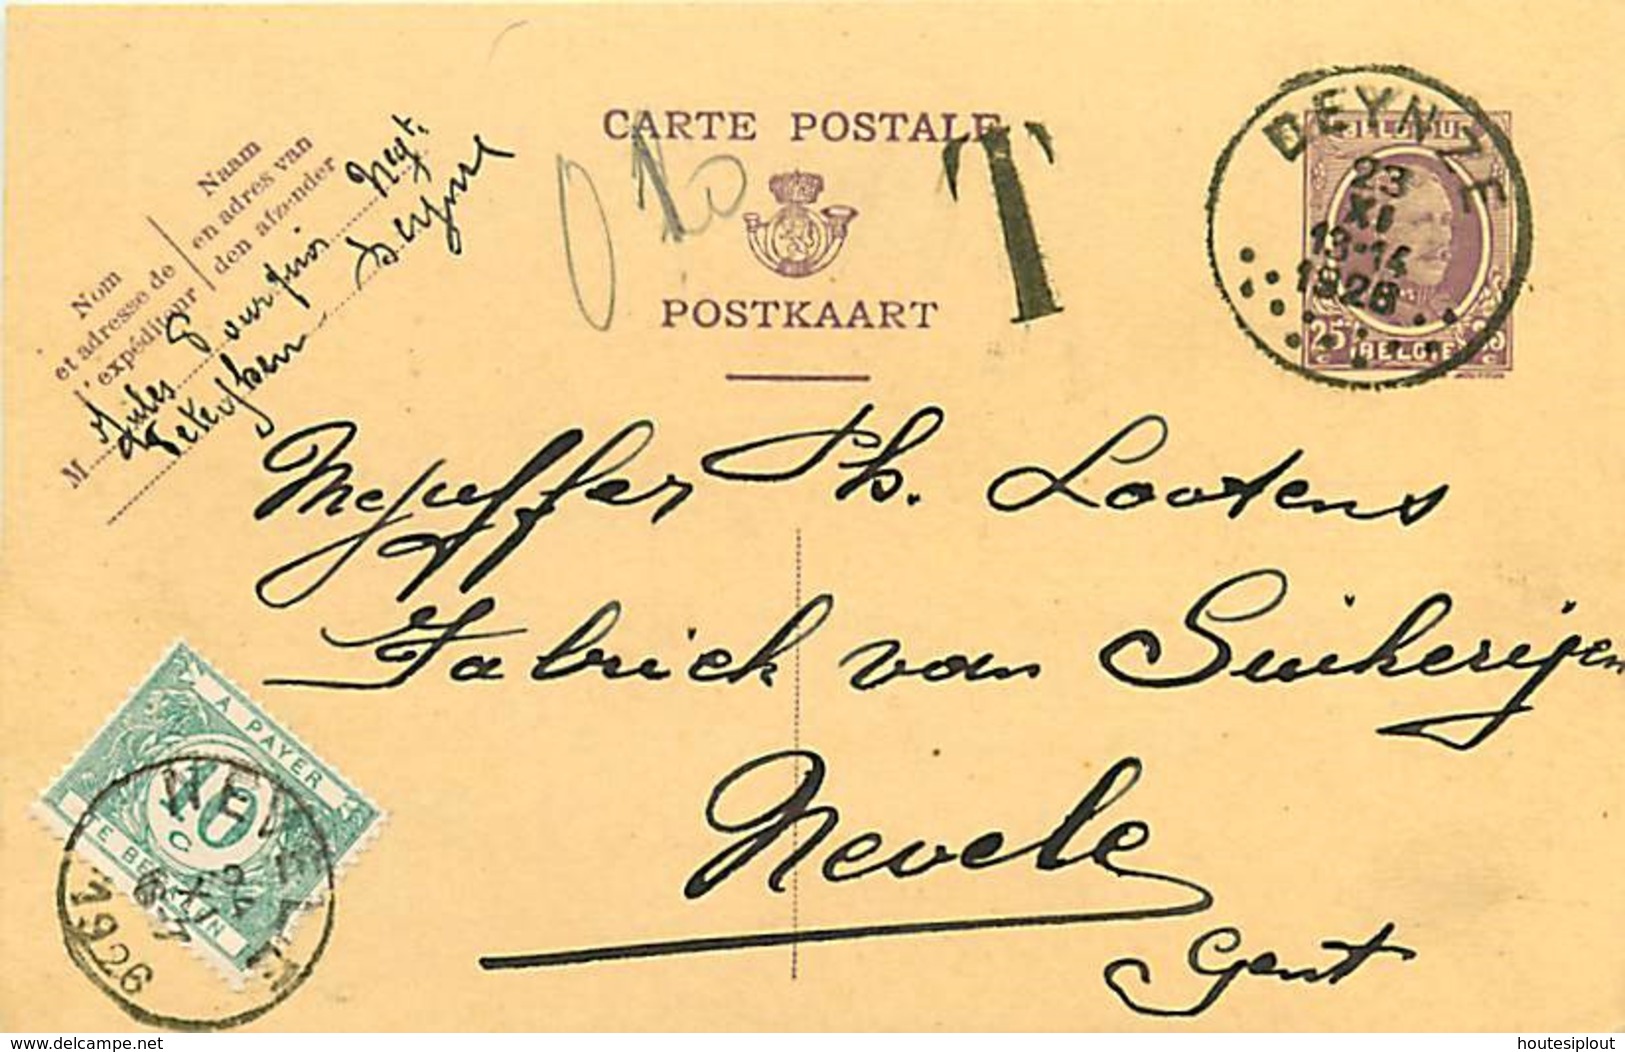 CARTE POSTALE
POSTKAART
T
Naam
en adres van
den afzender
Nom
et adresse de
l'expéditeur
M
Jules
Negt.
Deynze
DEYNZE
23
XI
13-14
1926
BELGIQUE
25 c
BELGIE
Mejuffer Ph. Lootens
Fabriek van Suikerijen
Nevele
Gent
A PAYER
10
C
TE BETALEN
NEVELE
XI
6-7
1926
delcampe.net
houtesiplout